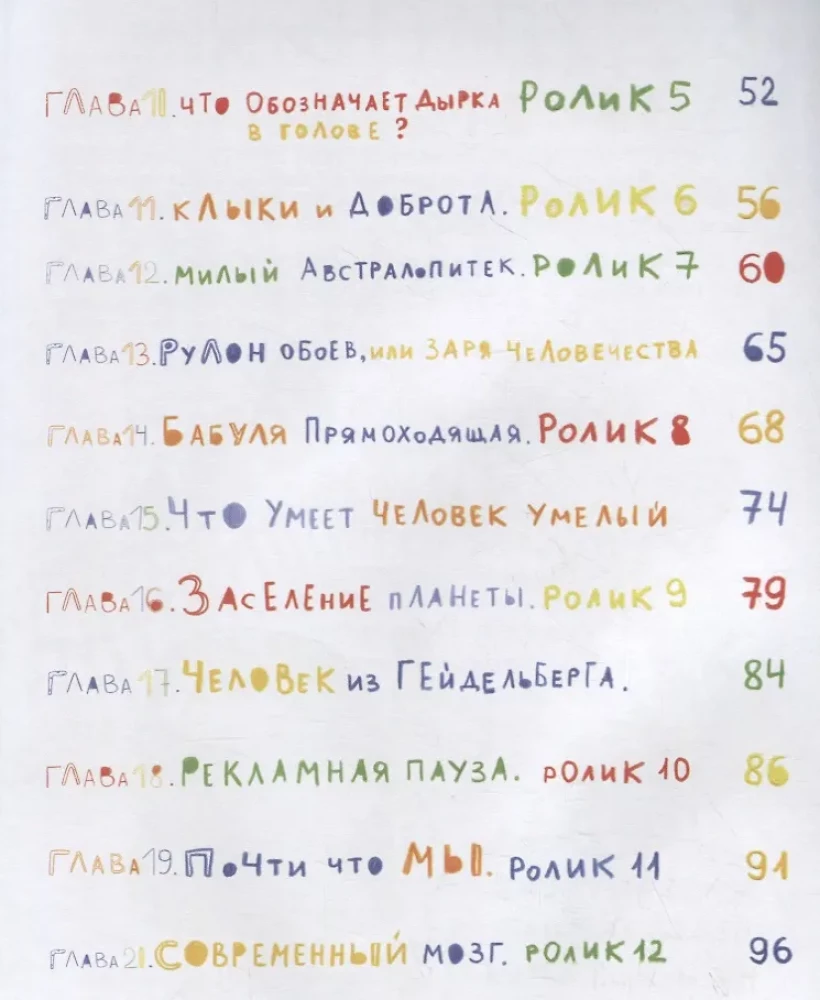 ГЛАВА 10. ЧТО ОБОЗНАЧАЕТ ДЫРКА РОЛИК 5 52
В ГОЛОВЕ?
ГЛАВА 11. КЛЫКИ И ДОБРОТА. РОЛИК 6 56
ГЛАВА 12. МИЛЫЙ АВСТРАЛОПИТЕК. РОЛИК 7 60
ГЛАВА 13. РУЛОН ОБОЕВ, ИЛИ ЗАРЯ ЧЕЛОВЕЧЕСТВА 65
ГЛАВА 14. БАБУЛЯ ПРЯМОХОДЯЩАЯ. РОЛИК 8 68
ГЛАВА 15. ЧТО УМЕЕТ ЧЕЛОВЕК УМЕЛЫЙ 74
ГЛАВА 16. ЗАСЕЛЕНИЕ ПЛАНЕТЫ. РОЛИК 9 79
ГЛАВА 17. ЧЕЛОВЕК ИЗ ГЕЙДЕЛЬБЕРГА. 84
ГЛАВА 18. РЕКЛАМНАЯ ПАУЗА. РОЛИК 10 86
ГЛАВА 19. ПОЧТИ ЧТО МЫ. РОЛИК 11 91
ГЛАВА 21. СОВРЕМЕННЫЙ МОЗГ. РОЛИК 12 96